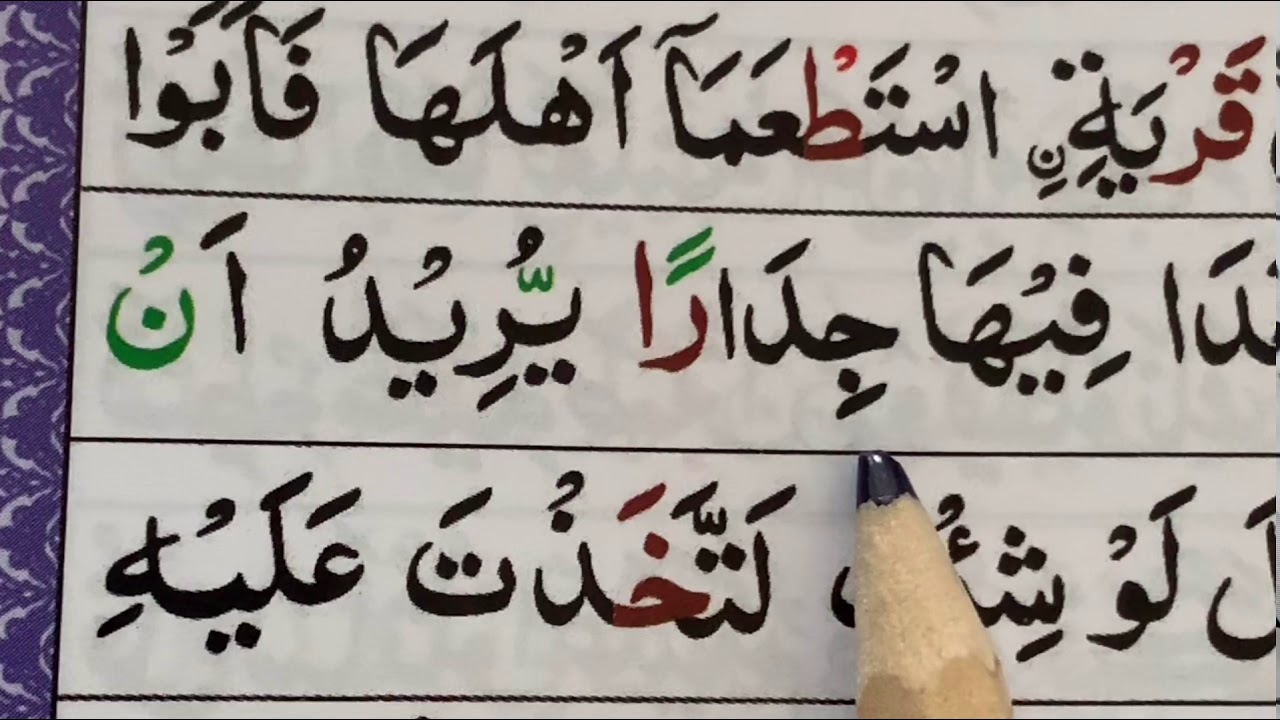 قَرْيَةِ ࣙاسْتَطْعَمَاۤ اَهْلَهَا فَاَبَوْا
فِيْهَا جِدَارًا يُّرِيْدُ اَنْ
لَوْ شِئْتَ لَتَّخَذْتَ عَلَيْهِ